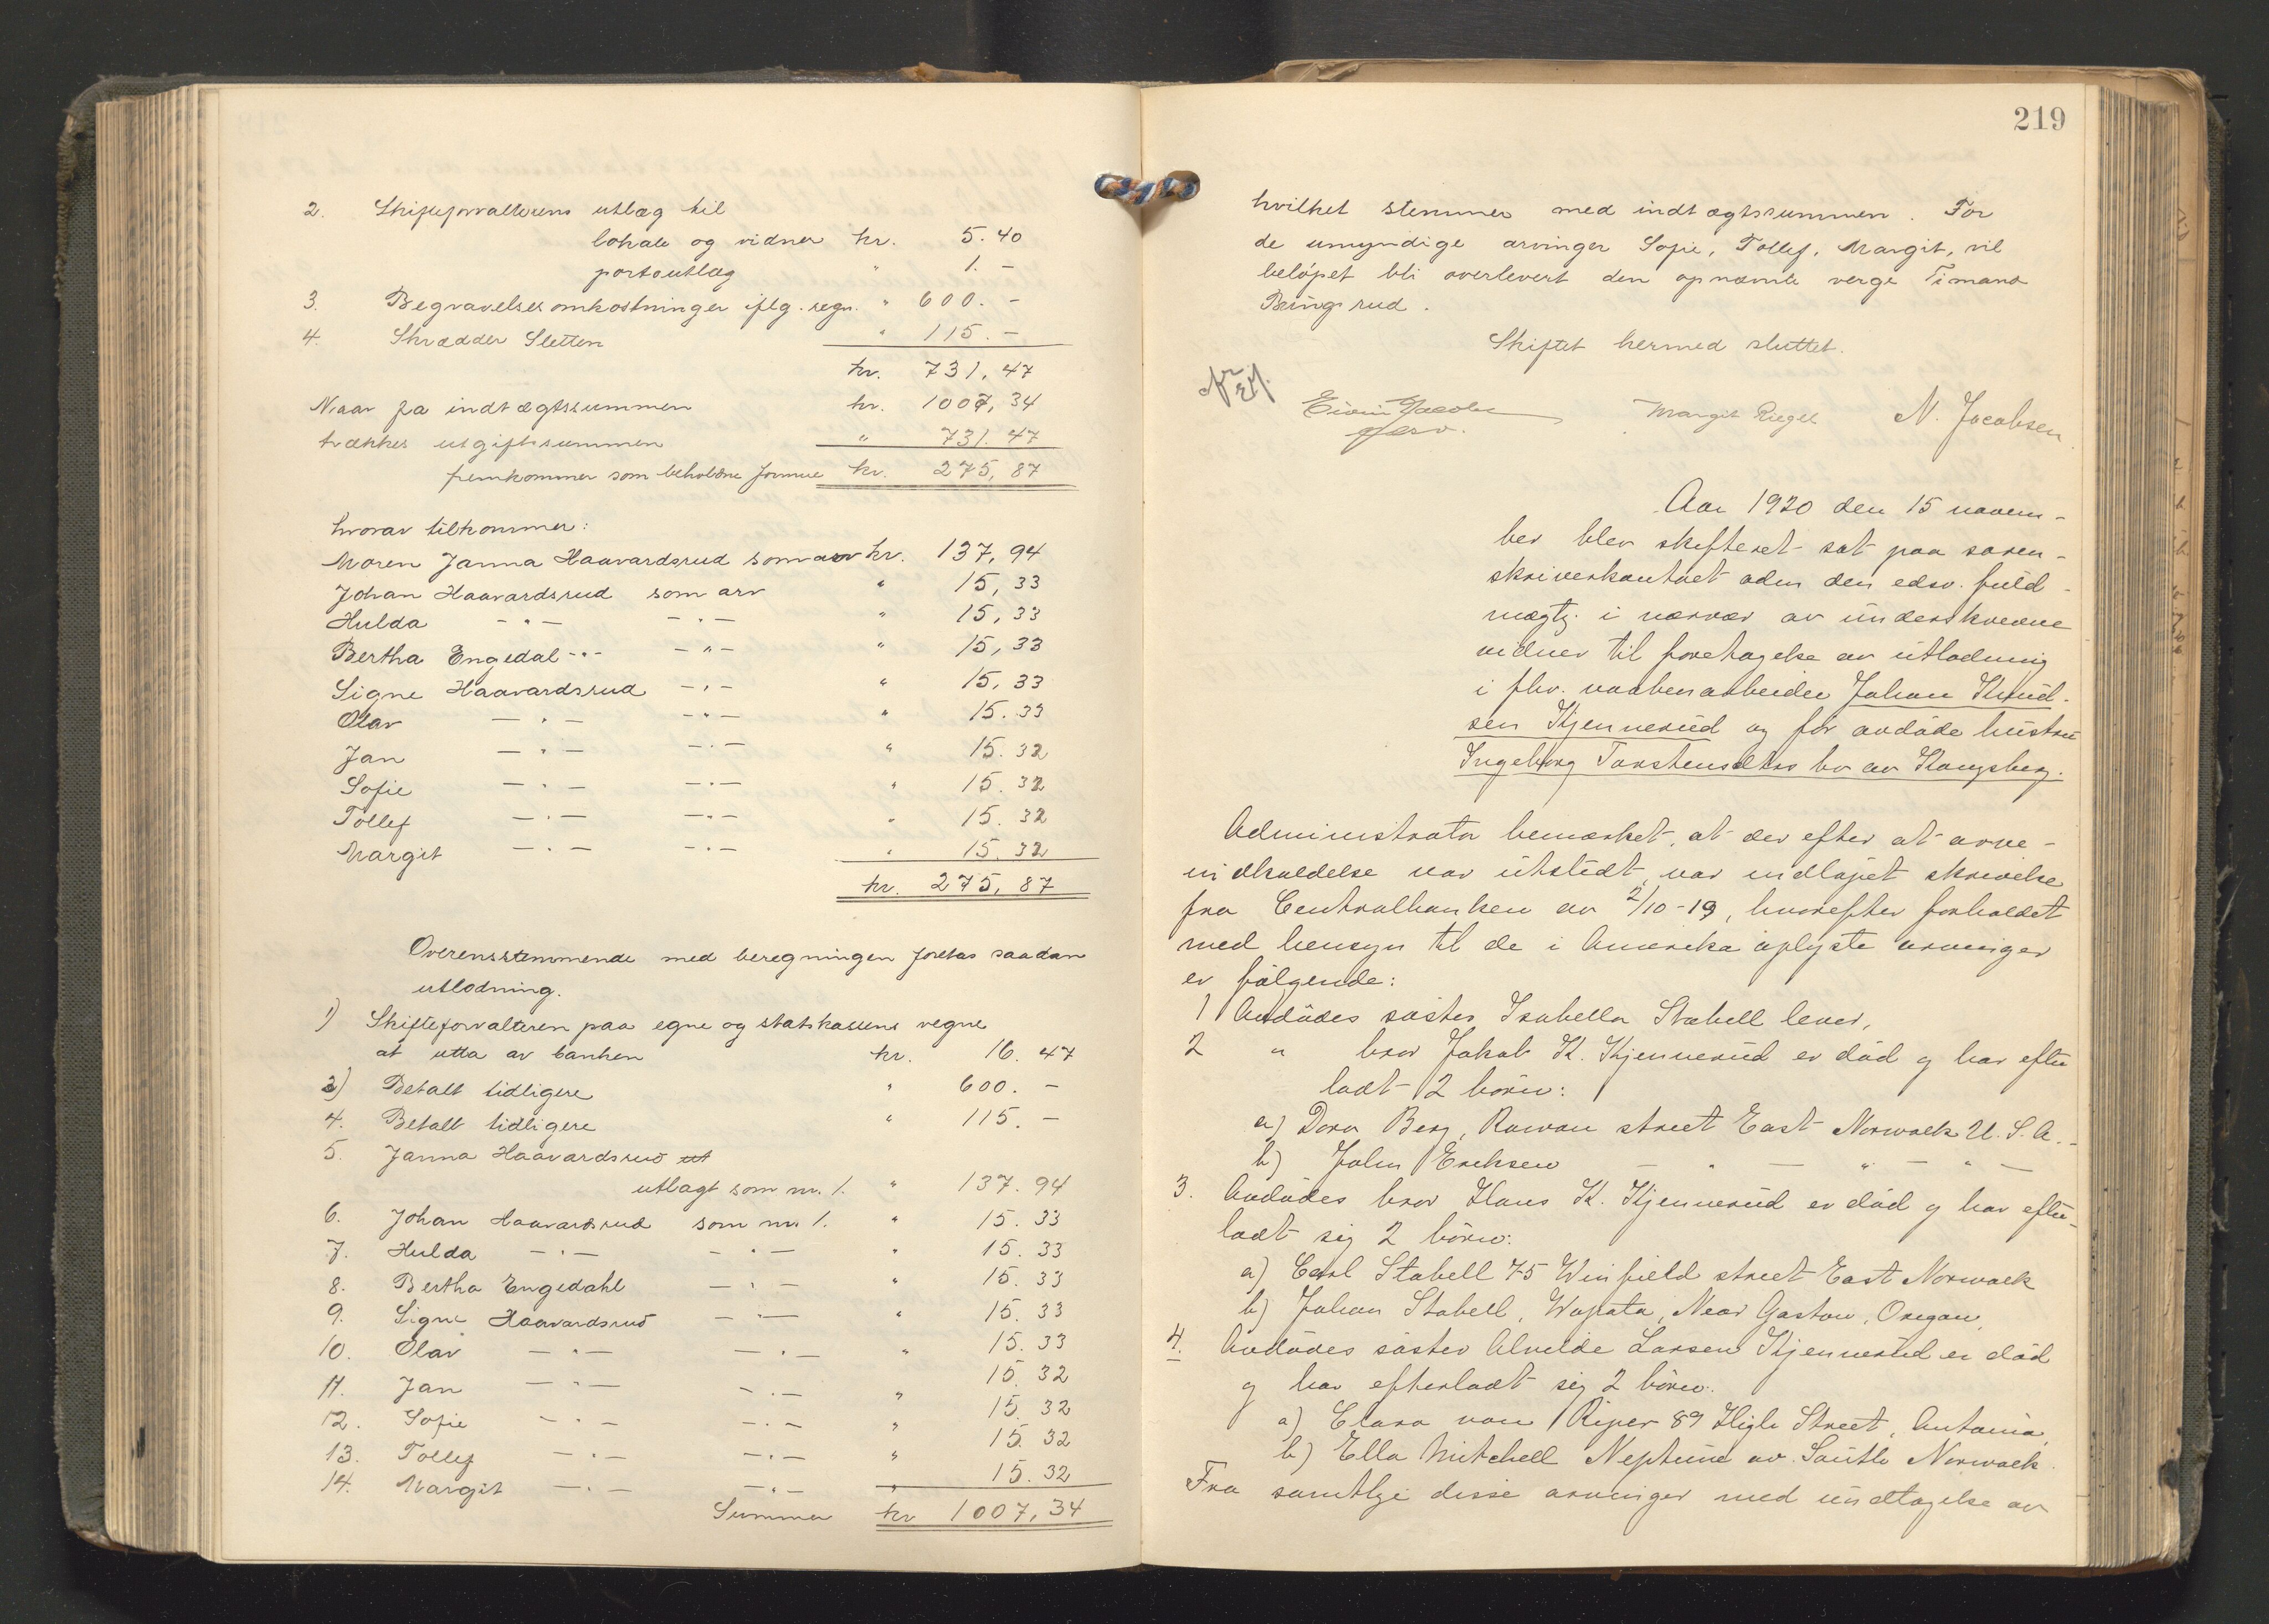 2. Skifteforvalterens utlæg til
lokale og vidner kr. 5.40
portoutlæg " 1. -
3. Begravelsesomkostninger iflg. regn. " 600. -
4. Skrædder Sletten " 115. -
kr. 731,47
Naar fra indtægtssummen kr. 1007,34
trækkes utgiftssummen " 731.47
fremkommer som beholdne formue kr. 275,87
hvorav tilkommer:
Moren Janna Haavardsrud som arv kr. 137,94
Johan Haavardsrud som arv " 15,33
Hulda -"- -"- " 15,33
Bertha Engedal -"- -"- " 15,33
Signe Haavardsrud -"- " 15,33
Olav -"- -"- " 15.33
Jan -"- -"- " 15.32
Sofie -"- -"- " 15.32
Tollef -"- -"- " 15.32
Margit -"- -"- " 15.32
kr. 275,87
Overensstemmende med beregningen foretas saadan
utlodning.
1) Skifteforvalteren paa egne og statskassens vegne
at utta av banken kr. 16.47
3) Betalt tidligere " 600. -
4. Betalt tidligere " 115. -
5. Janna Haavardsrud
utlagt som nr. 1. " 137.94
6. Johan Haavardsrud som nr. 1. " 15.33
7. Hulda -"- -"- " 15.33
8. Bertha Engedahl -"- " 15.33
9. Signe Haavardsrud -"- " 15.33
10. Olav -"- -"- " 15.33
11. Jan -"- -"- " 15.32
12. Sofie -"- -"- " 15.32
13. Tollef -"- -"- " 15.32
14. Margit -"- -"- " 15.32
Summa kr 1007,34
219
hvilket stemmer med indtægtssummen. For
de umyndige arvinger Sofie, Tollef, Margit, vil
beløpet bli overlevert den opnævnte verge Timand
Bingsrud.
Skiftet hermed sluttet.
Eivin Jacobsen Margit Riegel N. Jacobsen
Aar 1920 den 15 novem-
ber blev skifteret sat paa soren-
skriverkontoret adm den edsv. fuld-
mægtig i nærvær av underskrevne
vidner til foretagelse av utlodning
i fhv. vaabenarbeider Johan Knud-
sen Kjennerud og før avdøde hustru
Ingeborg Torstensdtrs bo av Kongsberg.
Administrator bemærket, at der efter at arve-
indkaldelse var utstedt, var indløpet skrivelse
fra Centralbanken av 2/10-19, hvorefter forholdet
med hensyn til de i Amerika oplyste arvinger
er følgende:
1 Avdødes søster Isabella Stabell lever,
2 " bror Jakob K. Kjennerud er død og har efter
ladt 2 børn:
a) Dora Berg, Rowan street East Norwalk U.S.A.-
b) John Ericksen - " - " - " -
3. Avdødes bror Hans K. Kjennerud er død og har efter-
ladt sig 2 børn:
a) Carl Stabell 75 Winfield street East Norwalk
b) Johan Stabell, Wapata, Near Gaston, Oregon.
4. Avdødes søster Alvilde Larsen Kjennerud er død
og har efterladt sig 2 børn:
a) Clara van Riper 89 High Street, Antonia,
b) Ella Mitchell Neptune av. South Norwalk.
Fra samtlige disse arvinger med undtagelse av